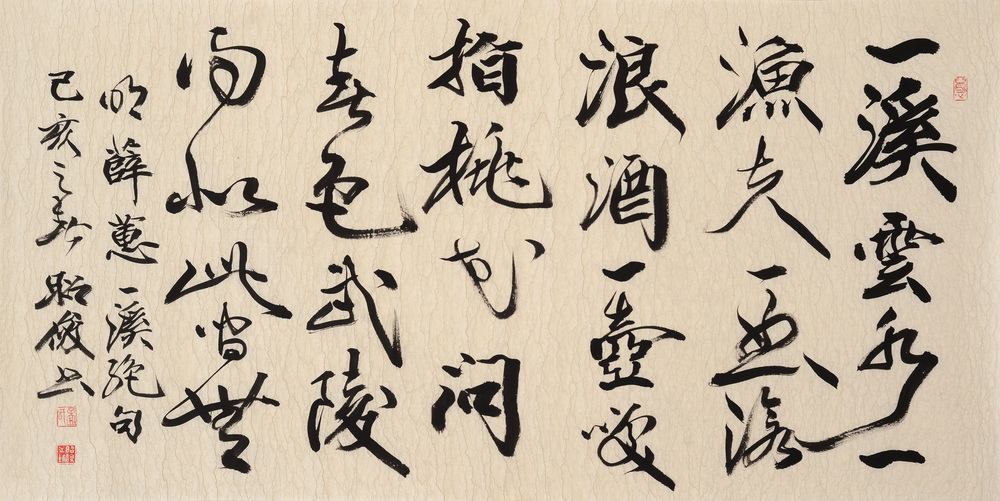 一溪雲水一
漁夫一曲滄
浪酒一壺笑
指桃花问
春色武陵
何似此間無
明薛蕙一溪絕句
己亥之秋昭俊书